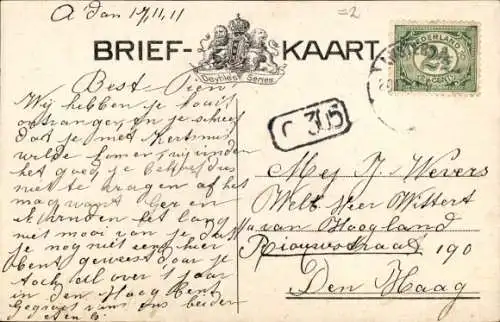 A Dam 17/11/11
=2
BRIEF- KAART
Dautzenberg Series
NEDERLAND
2½
CENT
C 305
Best Sien
Wij hebben je
ontvangen, en je schreef
dat je met Kertsmis
wilde komen
het goed je
niet te vragen of het
mag want
het lang
niet mooi van je dat
je nog niet eens hier
bent geweest daar je
toch al over 1 jaar
in den Haag bent
Gegroet van ons beiden
en
Mej J. Wevers
Welb. Heer Wittert
van Hoogland
Riouwstraat 190
Den Haag